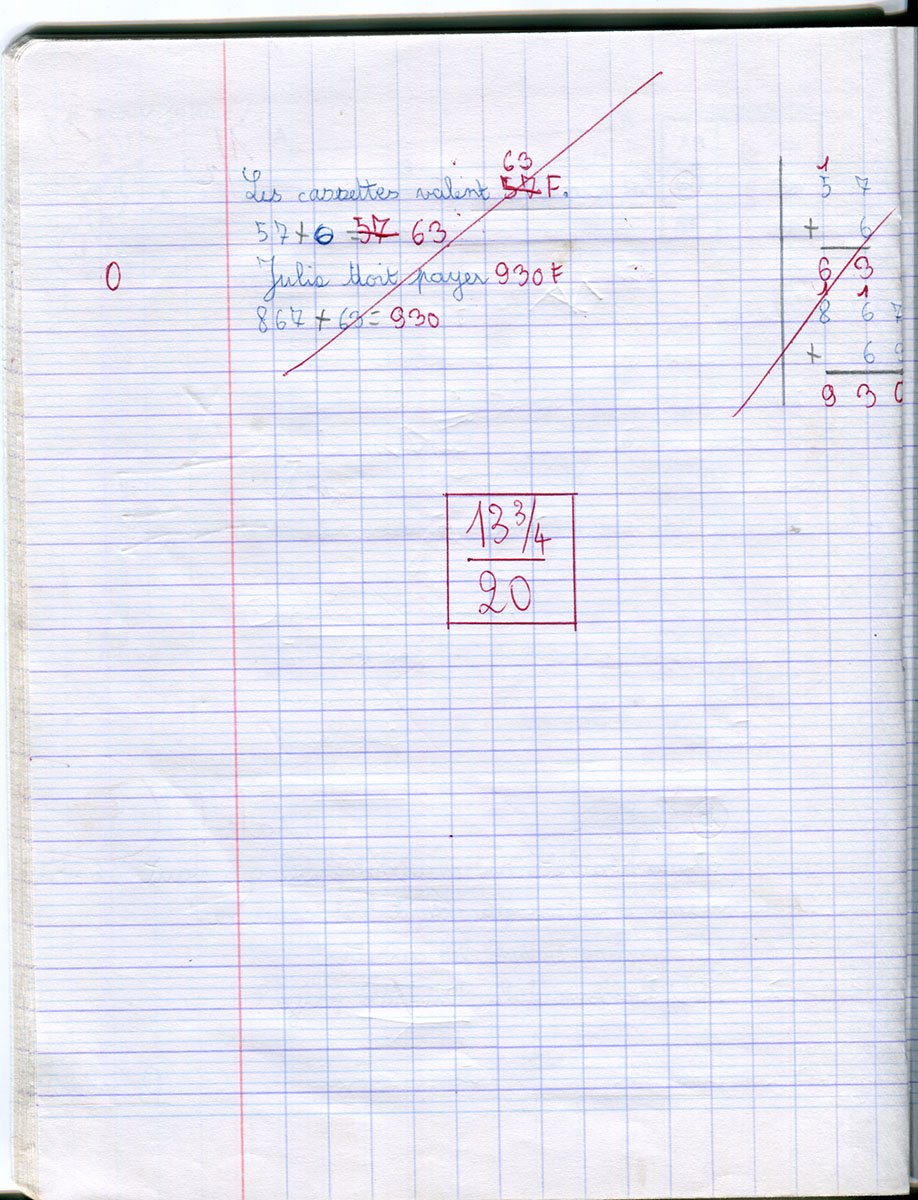 63
Les cassettes valent 57 F.
57 + 6 = 57 63
0
Julie doit payer 930 F
867 + 63 = 930
1
5 7
+ 6
6 3
1 1
8 6 7
+ 6
9 3 0
13 3/4
20